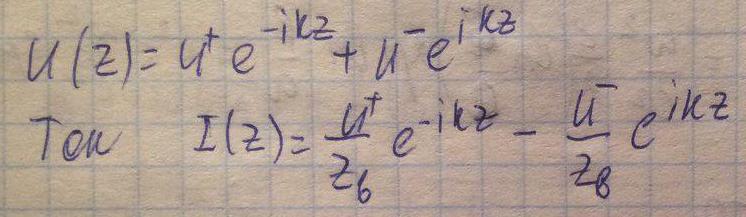 U(z)=U⁺e^{-ikz}+U⁻e^{ikz}
Ток I(z)=\frac{U⁺}{z_в}e^{-ikz}-\frac{U⁻}{z_в}e^{ikz}